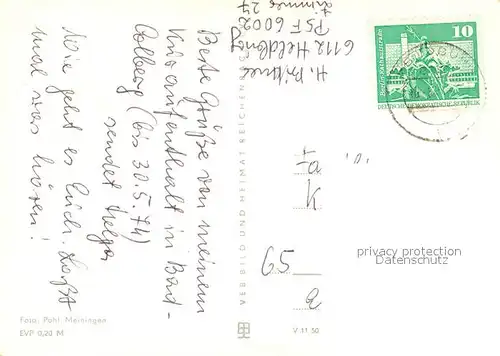 Beste Grüße von meinem
Kuraufenthalt in Bad-
Colberg (bis 30.5.74)
sendet Helga
Wie geht es Euch. Laßt
mal was hören!
H. Büttner
6112 Heldburg
PSF 6002
Zimmer 27
10
DEUTSCHE DEMOKRATISCHE REPUBLIK
VEB BILD UND HEIMAT REICHENBACH
65
privacy protection
Datenschutz
Foto: Pohl Meiningen
EVP 0,20 M
V 11 50